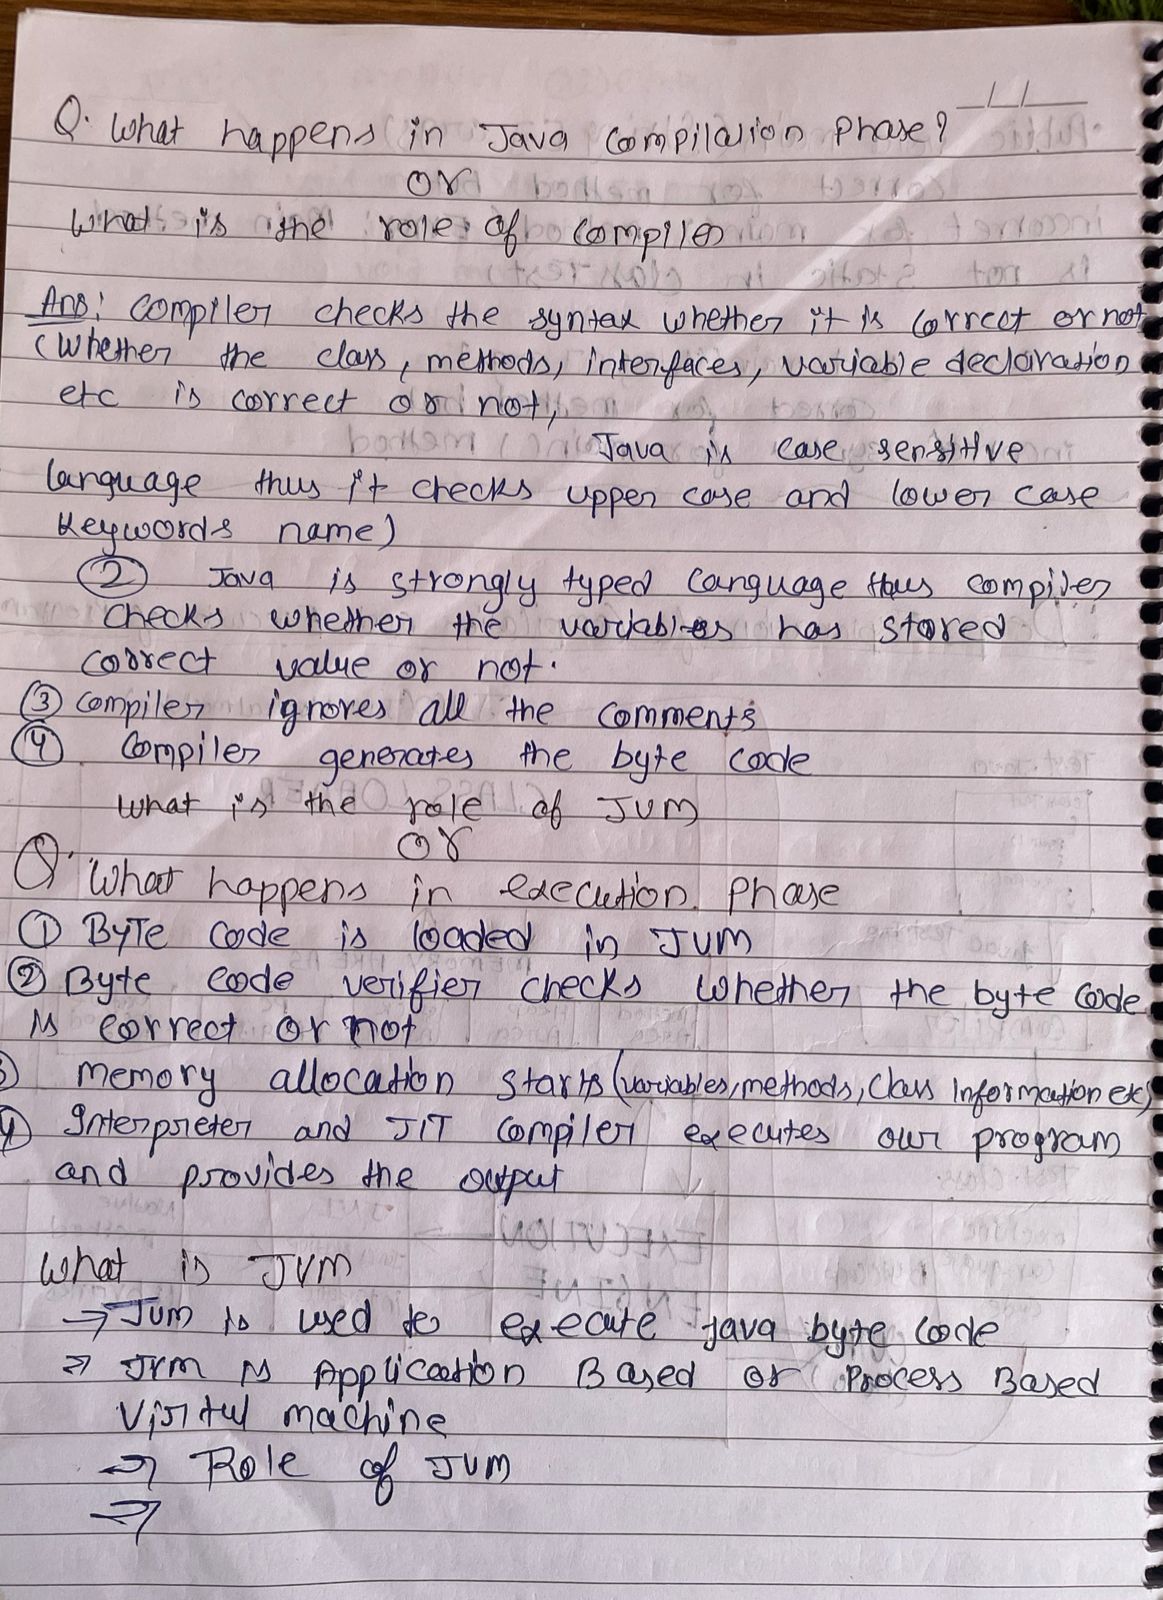 Q. What happens in Java Compilation Phase?
OR
What is the role of Compiler
Ans: Compiler checks the syntax whether it is correct or not
(Whether the class, methods, interfaces, variable declaration
etc is correct or not,
Java is case sensitive
language thus it checks upper case and lower case
keywords name)
② Java is strongly typed language thus compiler
checks whether the variables has stored
correct value or not.
③ Compiler ignores all the comments
④ Compiler generates the byte code
What is the role of JVM
OR
Q. What happens in execution Phase
① Byte code is loaded in JVM
② Byte code verifier checks whether the byte code
is correct or not
③ memory allocation starts (variables, methods, Class Information etc)
④ Interpreter and JIT Compiler executes our program
and provides the output
What is JVM
→ JVM is used to execute java byte code
⇒ JVM is Application Based or Process Based
Virtul machine
⇒ Role of JVM
⇒